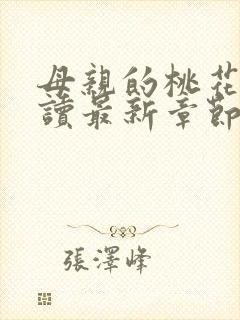 母親的桃花
讀最新章節
張澤峰